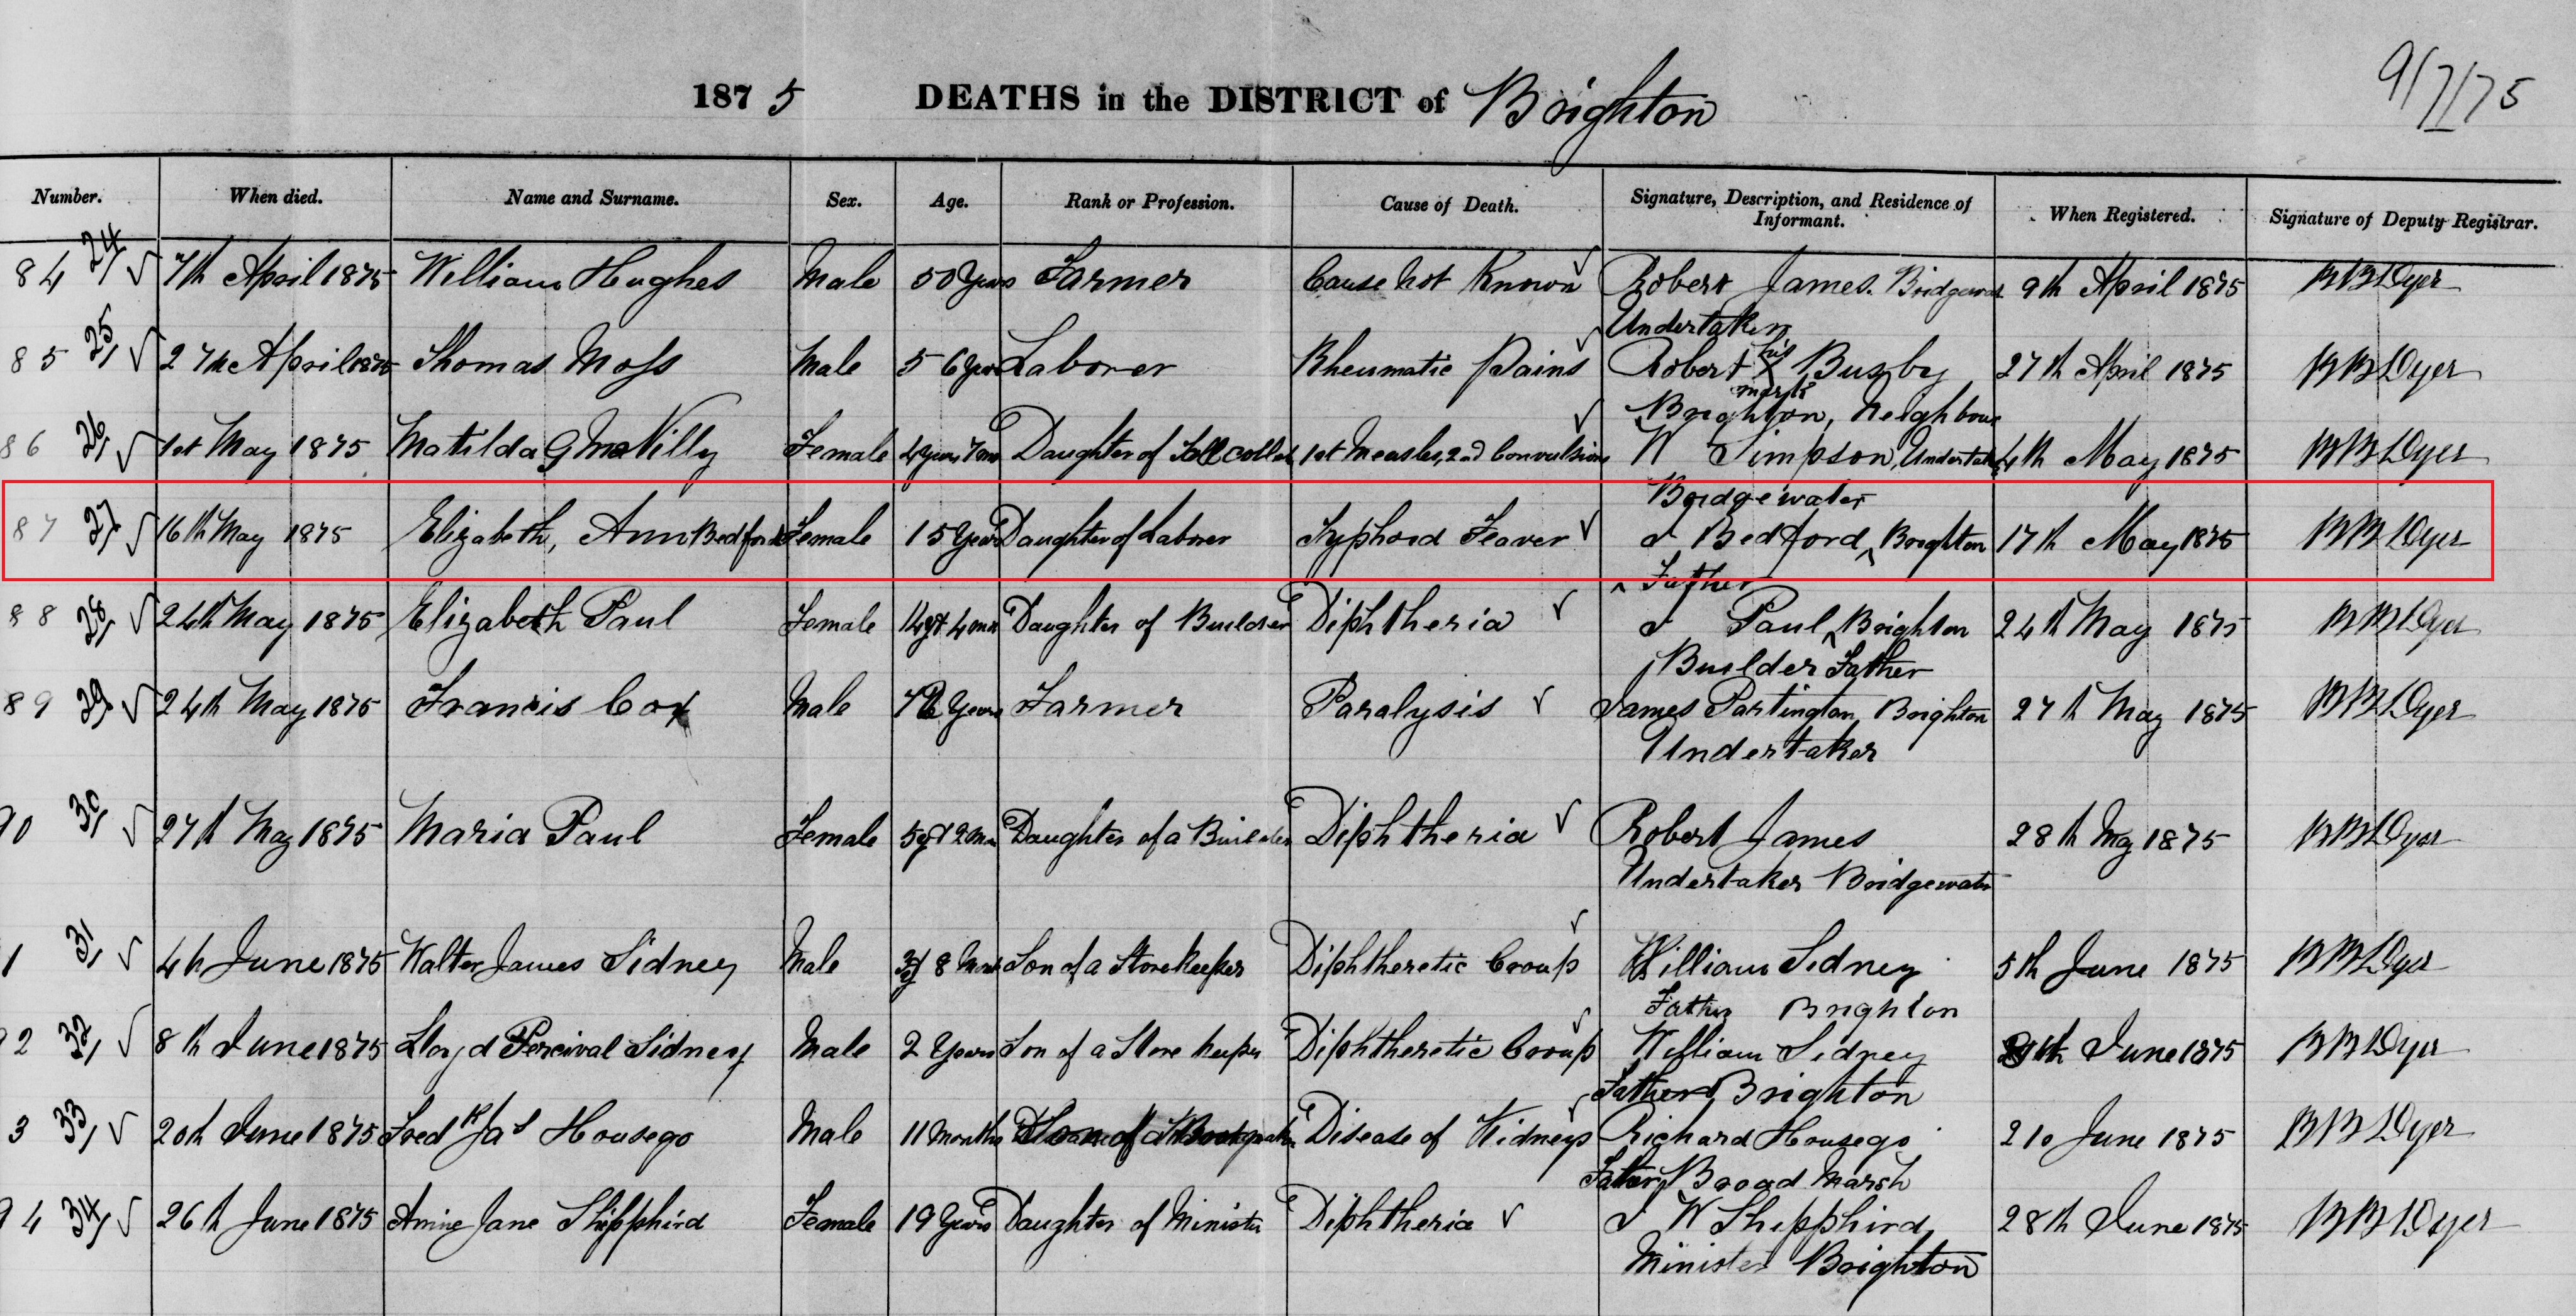 9/7/75
1875 DEATHS in the DISTRICT of Brighton
Number. When died. Name and Surname. Sex. Age. Rank or Profession. Cause of Death. Signature, Description, and Residence of Informant. When Registered. Signature of Deputy Registrar.
84 24 7th April 1875 William Hughes Male 50 Years Farmer Cause not Known Robert James. Bridgewater 9th April 1875 BB Dyer
Undertaker
85 25 27th April 1875 Thomas Moss Male 56 Years Laborer Rheumatic Pains Robert his X mark Busby 27th April 1875 BB Dyer
Brighton, Neighbour
86 26 1st May 1875 Matilda G McVilly Female 4 years 7 mo Daughter of Toll Collet 1st Measles, 2nd Convulsions W Simpson, Undertaker 4th May 1875 BB Dyer
Bridgewater
87 27 16th May 1875 Elizabeth, Ann Bedford Female 15 Years Daughter of Laborer Typhoid Feaver J Bedford, Brighton 17th May 1875 BB Dyer
Father
88 28 24th May 1875 Elizabeth Paul Female 4 mos Daughter of Builder Diphtheria J Paul, Brighton 24th May 1875 BB Dyer
Builder Father
89 29 24th May 1875 Francis Cox Male Years Farmer Paralysis James Partington, Brighton 27th May 1875 BB Dyer
Undertaker
90 30 27th May 1875 Maria Paul Female 5 yrs 2 mos Daughter of a Builder Diphtheria Robert James 28th May 1875 BB Dyer
Undertaker Bridgewater
1 31 4th June 1875 Walter James Sidney Male 8 Mons Son of a Storekeeper Diphtheretic Croup William Sidney 5th June 1875 BB Dyer
Father Brighton
92 32 8th June 1875 Lloyd Percival Sidney Male 2 Years Son of a Store keeper Diphtheretic Croup William Sidney June 1875 BB Dyer
Father, Brighton
3 33 20th June 1875 Fredk Jas Housego Male 11 Months Son of a Disease of Kidneys Richard Housego 21 June 1875 BB Dyer
Father, Broad Marsh
94 34 26th June 1875 Annie Jane Shipphird Female 19 Years Daughter of Minister Diphtheria J W Shipphird, 28th June 1875 BB Dyer
Minister Brighton